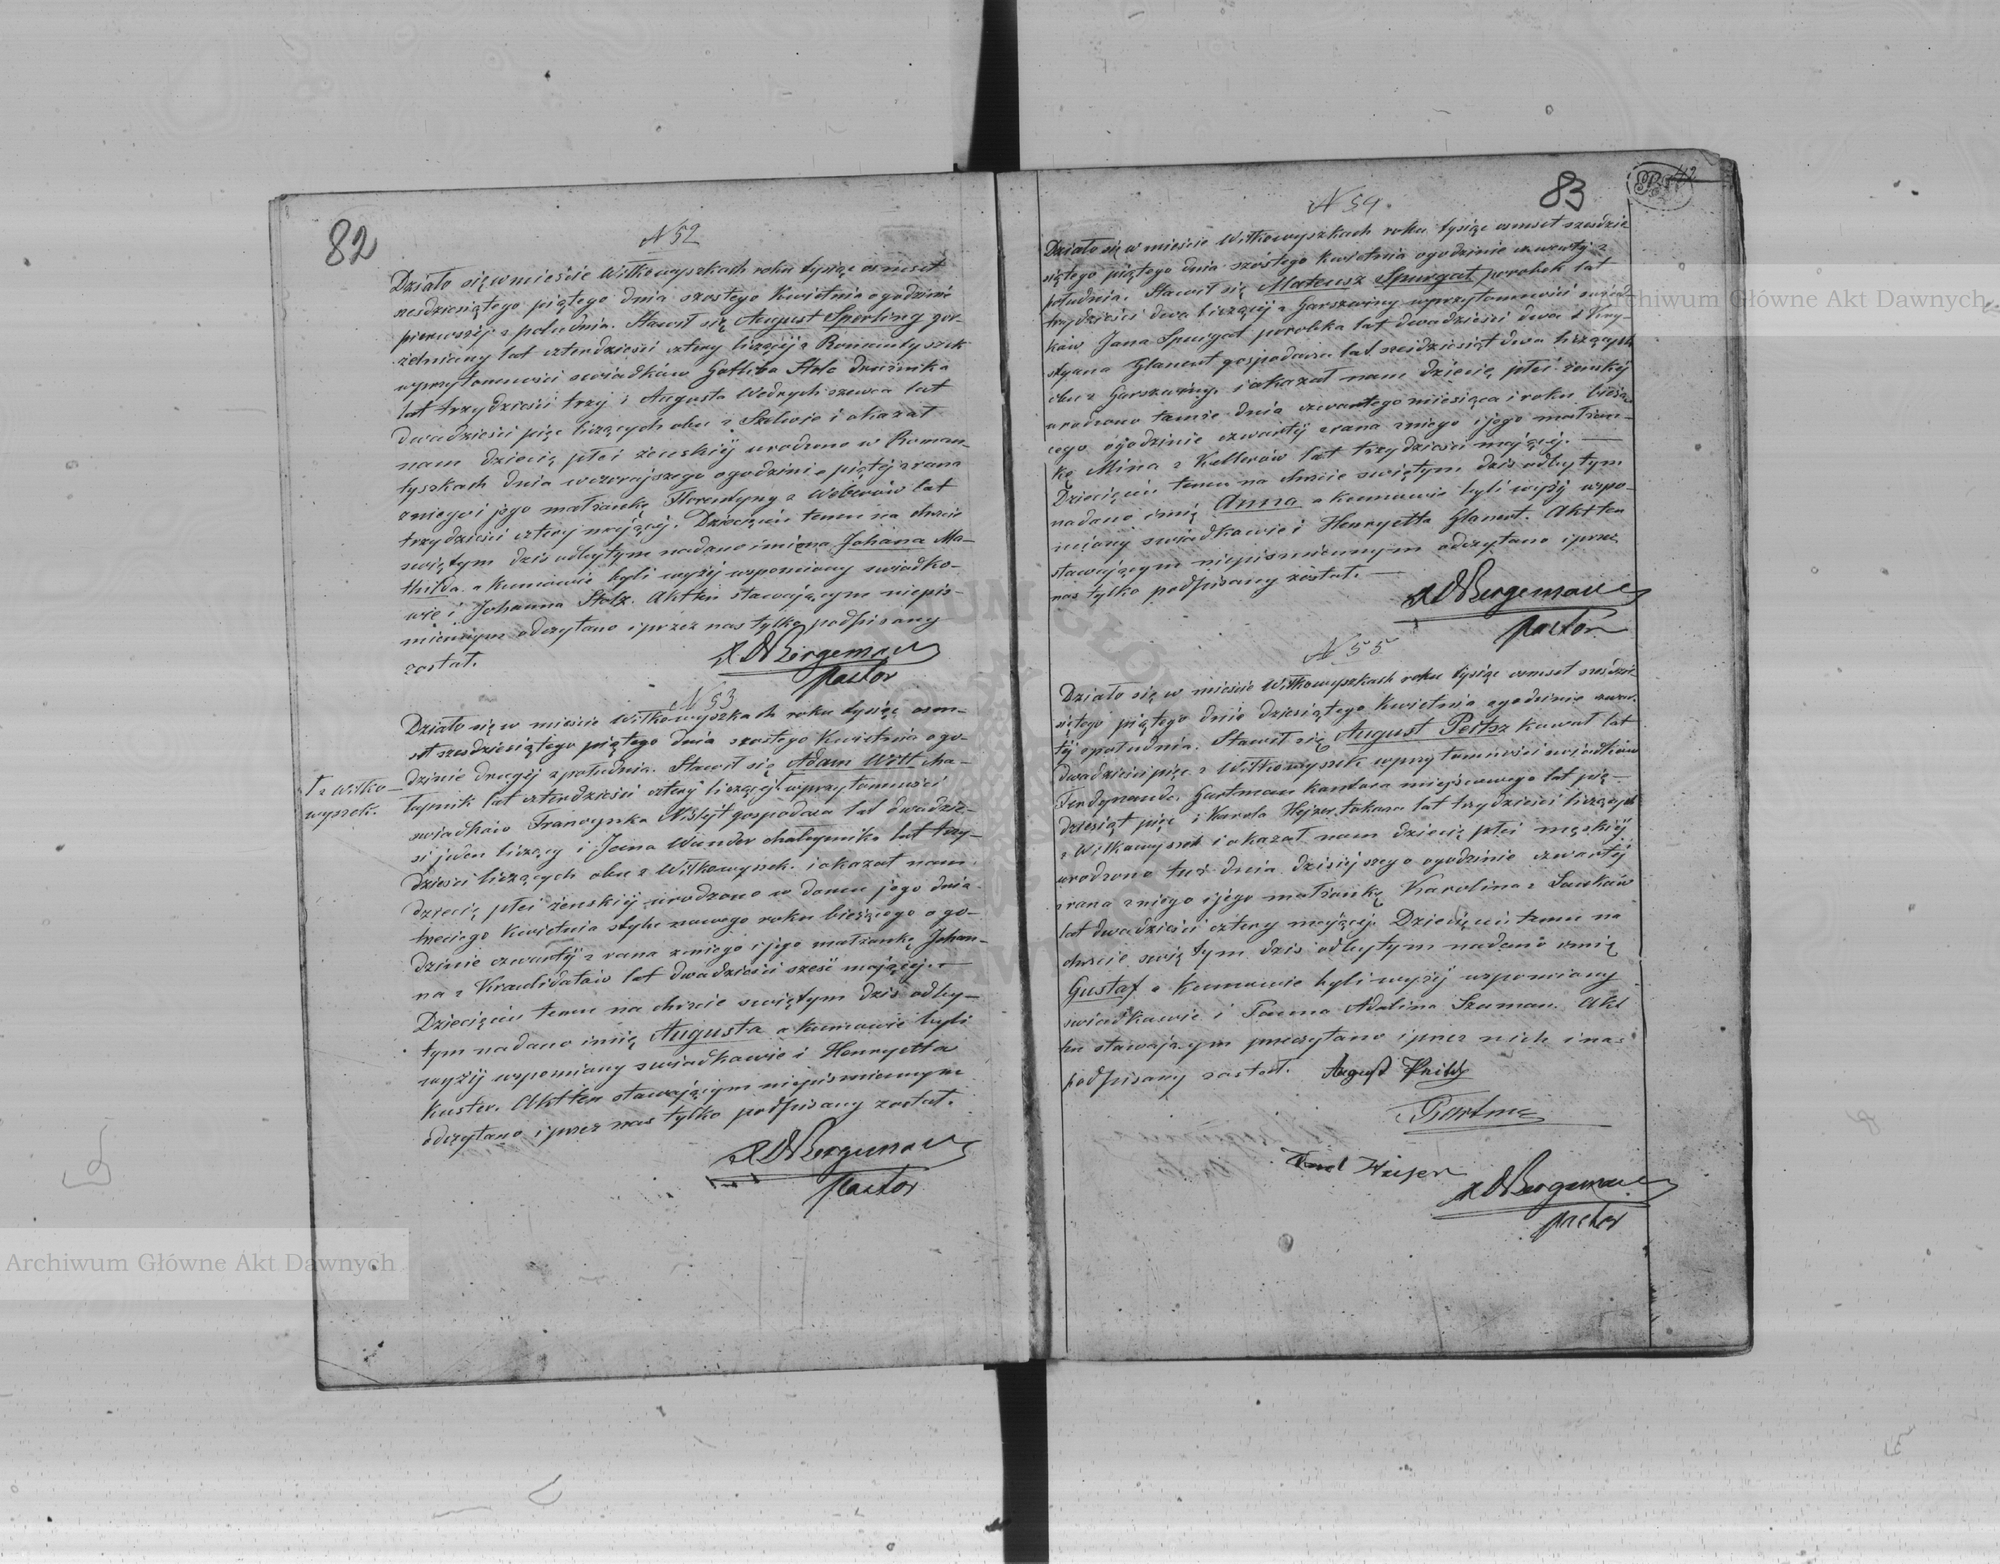 82
N 52
Działo się w mieście Wiłkowyszkach roku tysiąc osmset
szesdziesiątego piątego dnia szostego Kwietnia o godzinie
pierwszej z południa. Stawił się August Sperling gor-
zelniany lat czterdzieści cztery liczący z Romantyszek
w przytomności swiadków Gotliba Stolc
lat trzydzieści trzy i Augusta Wodrych szewca lat
dwadzieścia pięć liczących obu z i okazał
nam dziecię płci żenskiej urodzone w Roman-
tyszkach dnia wczorajszego o godzinie piątej z rana
z niego i jego małżonkę Florentyny z Weberów lat
trzydzieści cztery mającej. Dziecięciu temu na chrzcie
swiętym dziś odbytym nadano imiona Johana Ma-
thilda a kumowie byli wyżej wspomiany swiadko-
wie i Johanna Stolz. Akt ten stawającym niepis-
miennym odczytano i przez nas tylko podpisany
został.
Bergemann
Pastor
N 53
Działo się w mieście Wiłkowyszkach roku tysiąc osm-
set szesdziesiątego piątego dnia szostego Kwietnia o go-
dzinie drugiej z południa. Stawił się Adam Witt cha-
łupnik lat czterdzieści cztery liczący w przytomności
z Wiłko-
wyszek.
swiadków Franciszka gospodarza lat dwadzie-
ści jeden liczący i Jana Wunder chałupnika lat trzy-
dzieści liczących obu z Wiłkowyszek i okazał nam
dziecię płci żenskiej urodzone w domu jego dnia
trzeciego Kwietnia stylu nowego roku bieżącego o go-
dzinie czwartej z rana z niego i jego małżonkę Johan-
na z lat dwadzieścia sześć mającej. —
Dziecięciu temu na chrzcie swiętym dziś odby-
tym nadano imię Augusta a kumowie byli
wyżej wspomiany swiadkowie i Henryetta
Kuster. Akt ten stawającym niepismiennym
odczytano i przez nas tylko podpisany został.
Bergemann
Pastor
83
N 54.
Działo się w mieście Wiłkowyszkach roku tysiąc osmset szesdzie-
siątego piątego dnia szóstego kwietnia o godzinie czwartej z
południa. Stawił się Mateusz Spurgat porobek lat
trzydzieści dwa liczący z Garszwiny w przytomności swiad-
ków Jana Spurgat porobka lat dwadzieścia dwa i Kry-
styana Glanert gospodarza lat szesdziesiąt dwa liczących
obu z Garszwiny. i okazał nam dziecię płci żenskiej
urodzone tamże dnia czwartego miesiąca i roku bieżą-
cego o godzinie czwartej z rana z niego i jego małżon-
kę Mina z Kellerów lat trzydzieści mającej. —
Dziecięciu temu na chrzcie swiętym dziś odbytym
nadano imię Anna a kumowie byli wyżej wspo-
mniany swiadkowie i Henryetta Glanert. Akt ten
stawającym niepismiennym odczytano i przez
nas tylko podpisany został. —
Bergemann
Pastor
N 55
Działo się w mieście Wiłkowyszkach roku tysiąc osmset szesdzie-
siątego piątego dnia dziesiątego kwietnia o godzinie czwar-
tej z południa. Stawił się August Peitsz kowal lat
dwadzieścia pięć z Wiłkowyszek w przytomności swiadków
Ferdynanda Gartman kantora miejscowego lat pię-
dziesiąt pięć i Karola Hejzer tokarza lat trzydzieści liczących
z Wiłkowyszek i okazał nam dziecię płci męskiej
urodzone tuż dnia dzisiejszego o godzinie czwartej
z rana z niego i jego małżonkę Karolina z
lat dwadzieścia cztery mającej. Dziecięciu temu na
chrzcie swiętym dziś odbytym nadano imię
Gustaf a kumowie byli wyżej wspomiany
swiadkowie i Panna Adolina Szuman. Akt
ten stawającym przeczytano i przez nich i nas
podpisany został. August
Gartman
Bergemann
Pastor
Archiwum Główne Akt Dawnych
Archiwum Główne Akt Dawnych